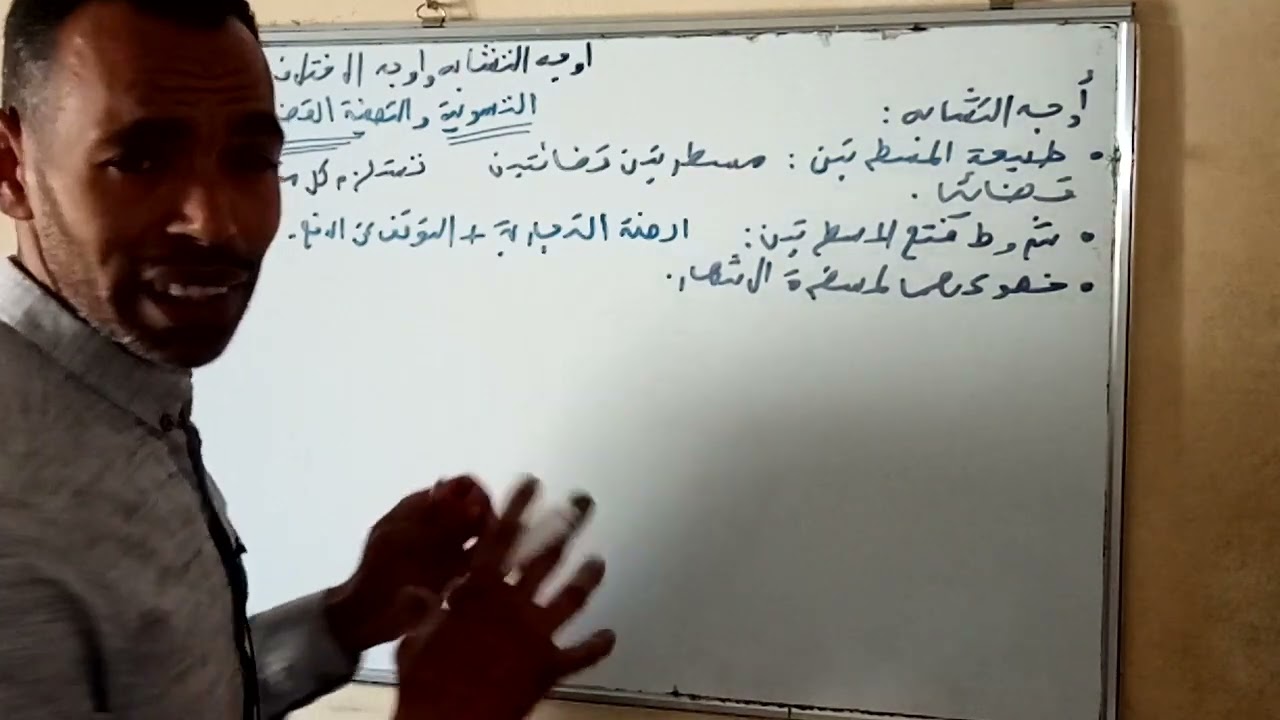 اوجه التشابه واوجه الاختلاف
التسوية والتصفية القض
أوجه التشابه:
• طبيعة المسطرتين: مسطرتين قضائيتين تستلزم كل
قضائيا.
• شروط فتح المسطرتين: الصفة التجارية + التوقف عن الدفع.
• خضوعهما لمسطرة الاشهار.